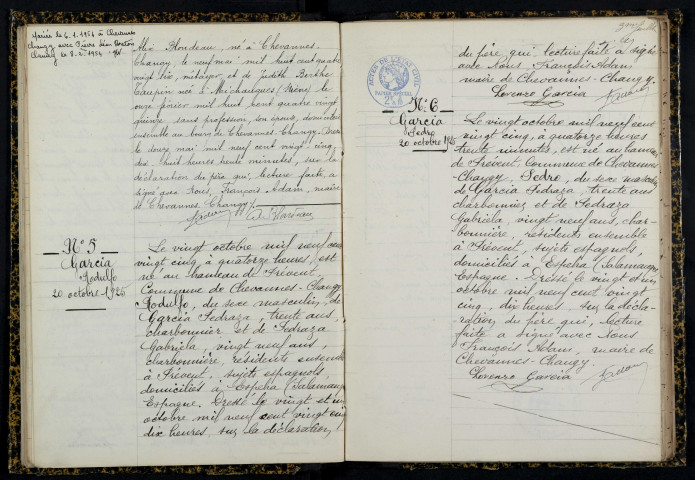 Mariée le 6.1.1954 à Chevannes
Changy avec Pierre Léon
Changy le 8.2.1954
Alix Blondeau, né à Chevannes
Changy le neuf mai mil huit cent quatre
vingt six, métayer et de Judith Berthe
née à Michaugues (Nièvre) le
onze février mil huit cent quatre vingt
quinze, sans profession, son épouse, domiciliés
ensemble au bourg de Chevannes-Changy. Dressé
le douze mai mil neuf cent vingt cinq,
dix huit heures trente minutes, sur la
déclaration du père qui, lecture faite, a
signé avec Nous, François Adam, maire
de Chevannes-Changy.
Adam Blondeau
N° 5
Garcia
Rodulfo
20 octobre 1925
Le vingt octobre mil neuf cent
vingt cinq, à quatorze heures, est
né au hameau de Frévent
Commune de Chevannes-Changy
Rodulfo, du sexe masculin, de
Garcia Pedraza, trente ans,
charbonnier et de Pedraza
Gabriela, vingt neuf ans,
charbonnière, résidents ensemble
à Frévent, sujets espagnols,
domiciliés à Espeha (Salamanque)
Espagne. Dressé le vingt et un
octobre mil neuf cent vingt cinq
dix heures, sur la déclaration
du père qui, lecture faite a signé
avec Nous, François Adam,
maire de Chevannes-Changy.
Lorenzo Garcia Adam
ACTES DE L'ETAT CIVIL
N° 6
Garcia
Pedro
20 octobre 1925
Le vingt octobre mil neuf cent
vingt cinq, à quatorze heures
trente minutes, est né au hameau
de Frévent, Commune de Chevannes
-Changy, Pedro, du sexe masculin
de Garcia Pedraza, trente ans
charbonnier et de Pedraza
Gabriela, vingt neuf ans, char-
bonnière, résidents ensemble
à Frévent, sujets espagnols,
domiciliés à Espeha (Salamanque)
Espagne. Dressé le vingt et un
octobre mil neuf cent vingt
cinq, dix heures, sur la décla-
ration du père qui, lecture
faite a signé avec Nous
François Adam, maire de
Chevannes-Changy.
Lorenzo Garcia Adam